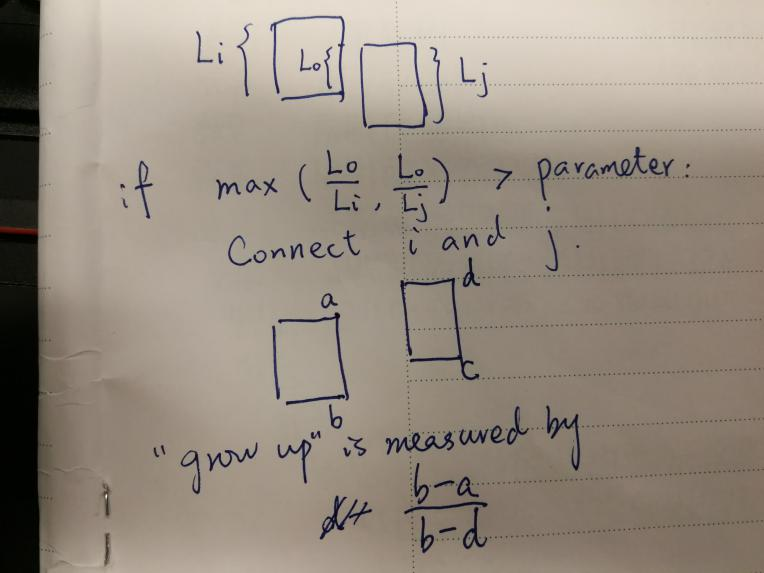 Li { Lo { } Lj
if max ( Lo/Li , Lo/Lj ) > parameter:
Connect i and j.
a d
b c
"grow up" is measured by
b-a
b-d